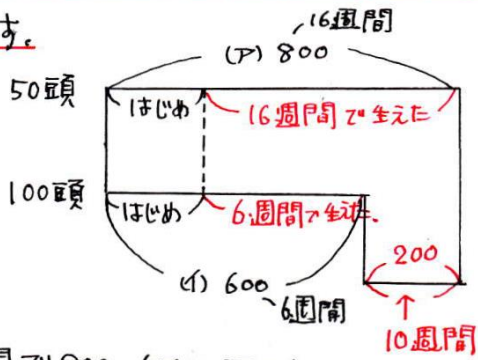 す。
16週間
(ア) 800
50頭
はじめ
16週間で生えた
100頭
はじめ
6週間で生えた
200
(イ) 600
6週間
10週間